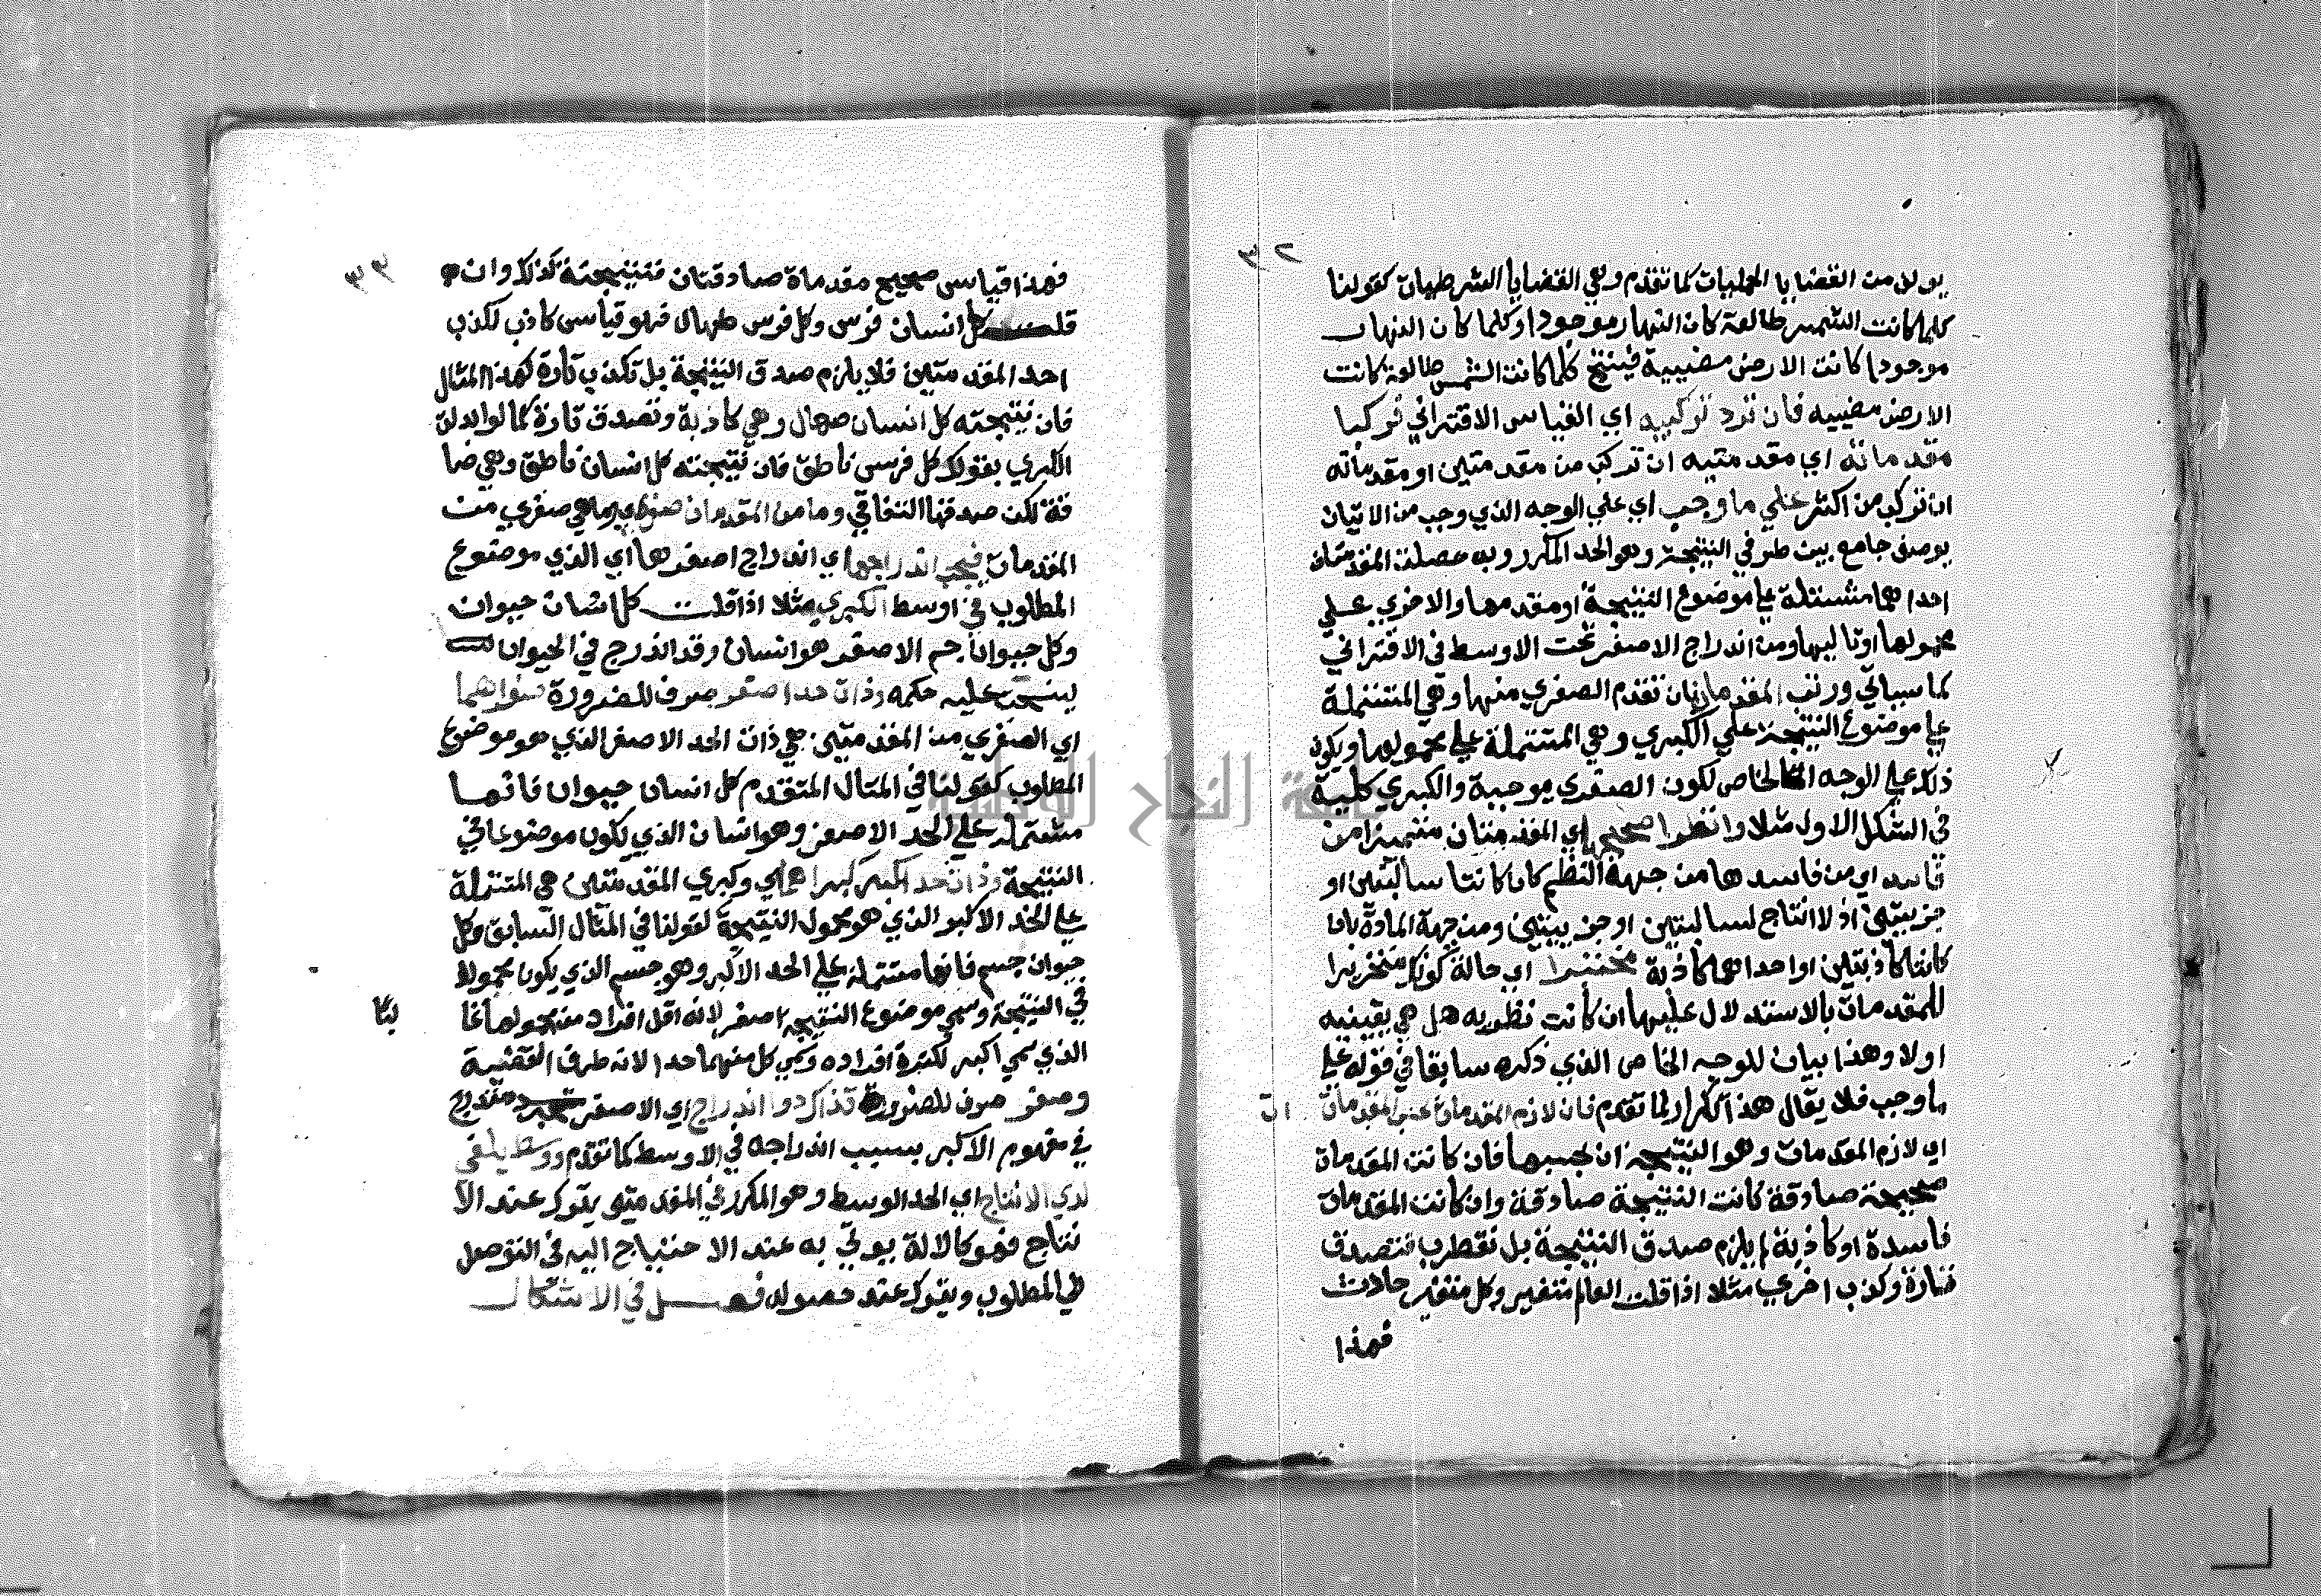 ٣٢
يولف من القضايا الحمليات كما تقدم وهي القضايا الشرطيات كقولنا
كلما كانت الشمس طالعة كان النهار موجودا وكلما كان النهار
موجودا كانت الارض مضيية فينتج كلما كانت الشمس طالعة كانت
الارض مضييه فان ترد تركيبه اي القياس الاقتراني فركبا
مقدماته اي مقدمتيه ان تركب من مقدمتين او مقدماته
ان تركب من اكثر علي ما وجب اي علي الوجه الذي وجب من الاتيان
بوصف جامع بين طرفي النتيجة وهو الحد المكرر وبه حصلت المقدمتان
احداهما مشتملة علي موضوع النتيجة او مقدمها والاخري علي
محمولها او تاليها ومن اندراج الاصغر تحت الاوسط في الاقتراني
كما سياتي ورتب المقدمات بان تقدم الصغري منها وهي المشتملة
علي موضوع النتيجة علي الكبري وهي المشتملة علي محمولها ويكون
ذلك علي الوجه الخاص لكون الصغري موجبة والكبري كلية
في الشكل الاول مثلا وانظرا صحيحها اي المقدمتان متميزا من
فاسد اي من فاسدها من جهة النظم كان كانتا سالبتين او
جزييتين اذ لا انتاج لسالبتين او جزييتين ومن جهة المادة بان
كانتا كاذبتين او احداهما كاذبة مختبرا اي حالة كونك مختبرا
للمقدمات بالاستدلال عليها ان كانت نظريه هل هي يقينيه
اولا وهذا بيان للوجه الخاص الذي ذكره سابقا في قوله علي
ما وجب فلا يقال هذا تكرار لما تقدم فان لازم المقدمات بحسب المقدمات ات
اي لازم المقدمات وهو النتيجة ان بحسبها فان كانت المقدمات
صحيحة صادقة كانت النتيجة صادقة وان كانت المقدمات
فاسدة او كاذبة لم يلزم صدق النتيجة بل تضطرب فتصدق
تارة وكذب اخري مثلا اذا قلت العالم متغير وكل متغير حادث
فهذا
٣٣
فهذا قياس صحيح مقدماة صادقتان فنتيجته كذلك وان
قلت كل انسان فرس وكل فرس صهال فهو قياس كاذب لكذب
احد المقدمتين فلا يلزم صدق النتيجة بل تكذب تارة كهذا المثال
فان نتيجته كل انسان صهال وهي كاذبة وتصدق تارة كما لو ابدلت
الكبري بقولك كل فرس ناطق فان نتيجته كل انسان ناطق وهي صا
قة لكن صدقها اتفاقي وما من المقدمات صغري وما هي صغري من
المقدمات فيجب اندراجها اي اندراج اصغرها اي الذي موضوع
المطلوب في اوسط الكبري مثلا اذا قلت كل انسان حيوان
وكل حيوان جسم الاصغر هو انسان وقد اندرج في الحيوان
لينسحب عليه حكمه وذات حد اصغر صوف للضرورة صغراهما
اي الصغري من المقدمتين هي ذات الحد الاصغر الذي هو موضوع
المطلوب كقولنا في المثال المتقدم كل انسان حيوان فانها
مشتملة علي الحد الاصغر وهو انسان الذي يكون موضوعا في
النتيجة وذات حد اكبر كبراهما اي وكبري المقدمتين هي المشتملة
علي الحد الاكبر الذي هو محمول النتيجة كقولنا في المثال السابق وكل
حيوان جسم فانها مشتملة علي الحد الاكبر وهو جسم الذي يكون محمولا
في النتيجة وسمي موضوع النتيجة اصغر لانه اقل افراد من محولها غا لبًا
الذي سمي اكبر لكثرة افراده وسمي كل منهما حدا لانه طرف القضية
وصغر صوف للضرورة تذاك ذو اندراج اي الاصغر مندرج
في مفهوم الاكبر بسبب اندراجه في الاوسط كما تقدم ووسط يلغي
لدي الانتاج اي الحد الوسط وهو المكرر في المقدمتين يترك عند الا
نتاج فهو كالالة يوتي به عند الاحتياج اليه في التوصل
الي المطلوب ويترك عند حصوله فصل في الاشكال